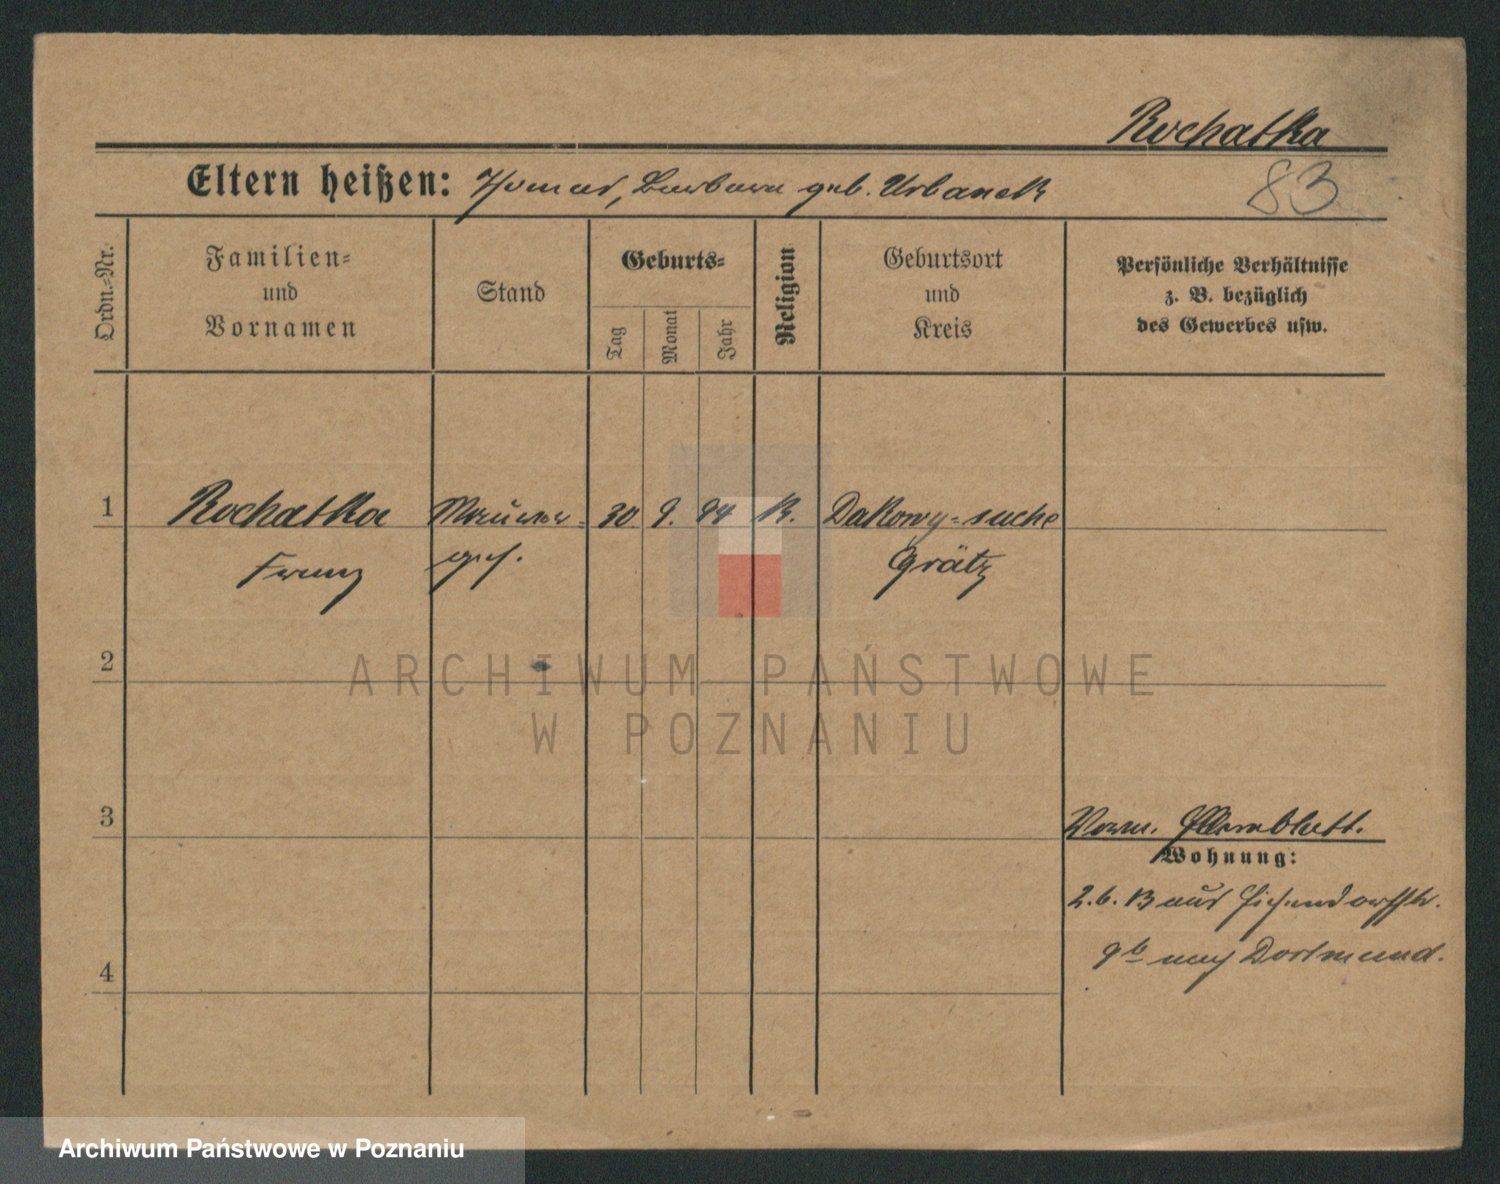 Rochatka
83
Eltern heißen: Thomas, Barbara geb. Urbanek
Ordn.-Nr.
Familien-
und
Vornamen
Stand
Geburts-
Tag
Monat
Jahr
Religion
Geburtsort
und
Kreis
Persönliche Verhältnisse
z. B. bezüglich
des Gewerbes usw.
1
Rochatka
Franz
Maurer-
ges.
30. 9. 94
K.
Dakowy-suche
Grätz
2
3
Elternblatt.
Wohnung:
2. 6. 13 aus Eichendorffstr.
nach Dortmund.
4
ARCHIWUM PAŃSTWOWE
W POZNANIU
Archiwum Państwowe w Poznaniu